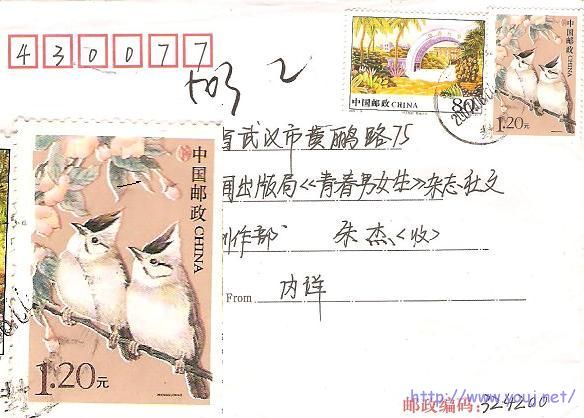 430077
103 2
中国邮政 CHINA
80分
中国邮政 CHINA
1.20元
武汉市黄鹏路75
出版局《青春男女生》杂志社文
制作部 朱杰〈收〉
From 内详
中国邮政 CHINA
1.20元
http://www.youj.net/
邮政编码: 324200